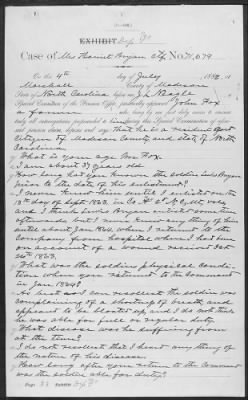 EXHIBIT Dep F
Case of Mrs Harriet Bryan No. 71,679
On the 4th day of July 188
Marshall County of Madison
State of North Carolina before J. H. Nagle
Special Examiner of the Pension Office, personally appeared John Fox
a farmer who being by me first duly sworn to answer
truly all interrogatories propounded to him during this Special Examination of afore-
said pension claim, deposes and says that he is a resident and
Citizen of Madison County and State of North
Carolina.
What is your age Mr Fox.
I am about 37 years old.
How long had you known the soldier Bryan
prior to the date of his enlistment?
I never knew him until I enlisted on the
day of Sept 1863, in Co.
and I think Bryan enlisted sometime
afterwards but I never knew anything of him
until about Jan 1864 when I returned to the
Company from hospital where I had been
on account of a wound received Oct
26th 1863.
What was the soldiers physical condi-
tion when you returned to the Command
in Jan 1864?
As best as I can recollect the soldier was
complaining of a shortness of breath and
appeared to be bloated up and I do not think
he was able for full or regular duty.
What disease was he suffering from
at the time?
I do not recollect that I heard any thing of
the nature of his disease.
How long after your return to the Command
was the soldier able for duty?
Page 33 Dep F